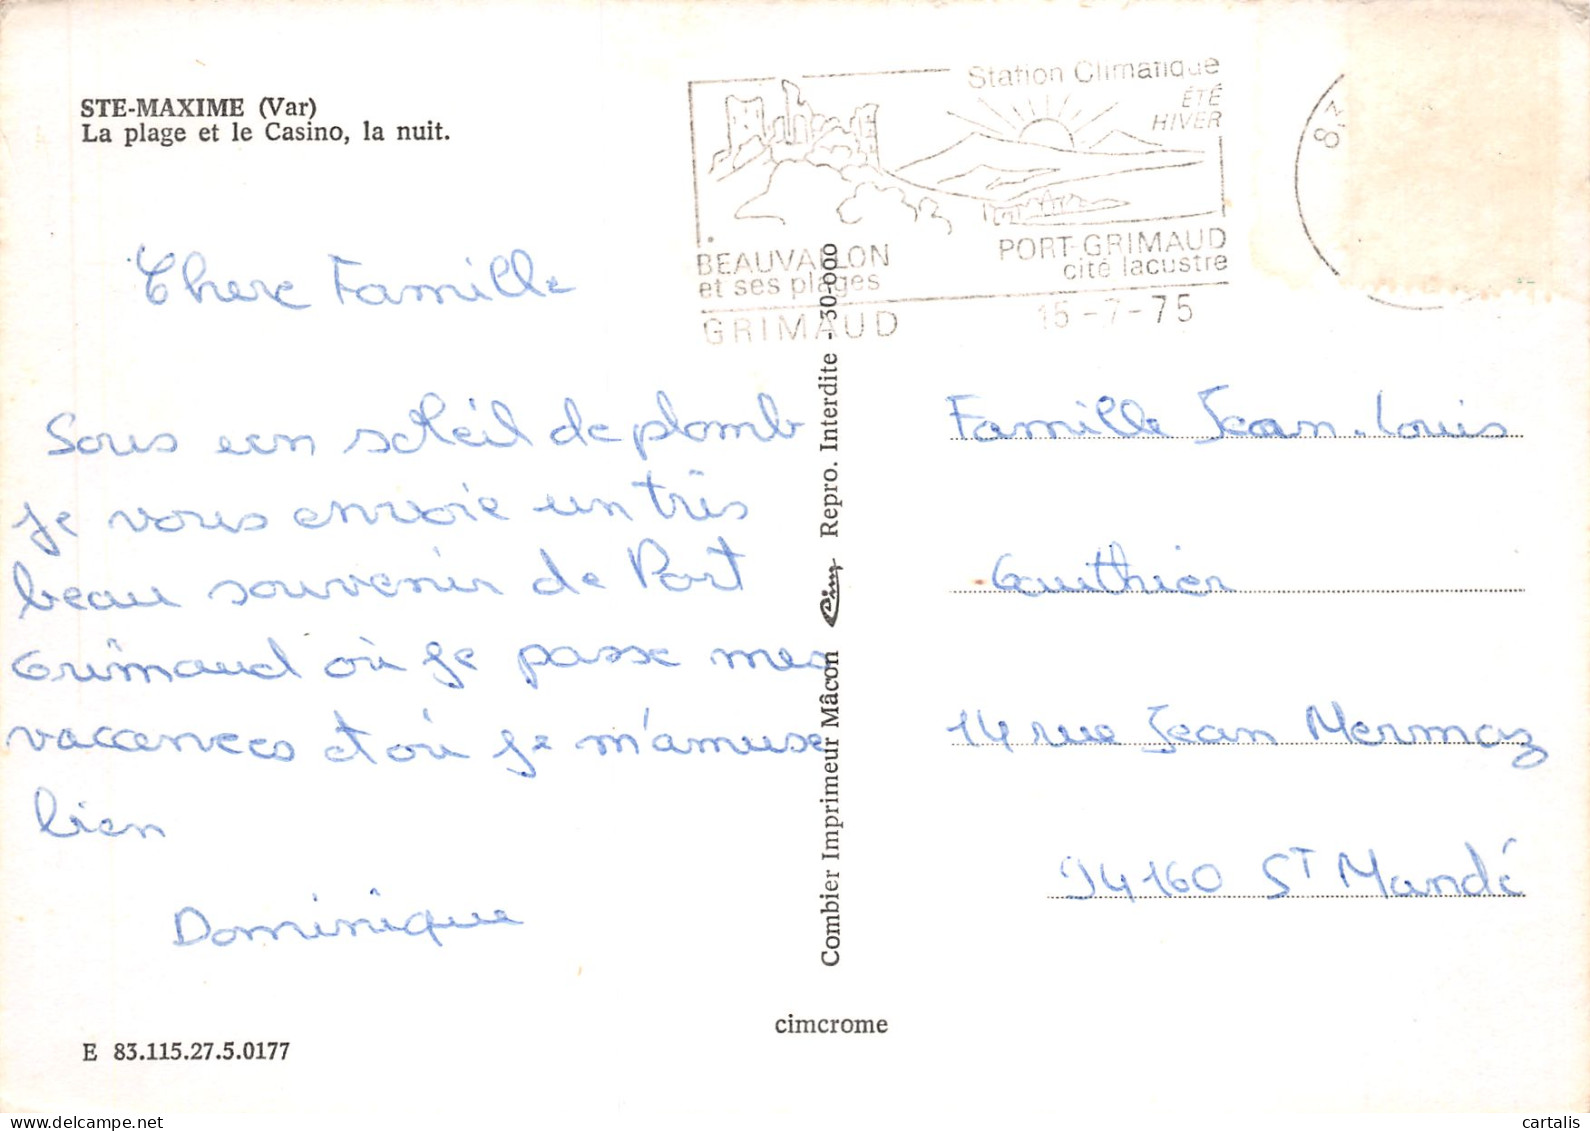 STE-MAXIME (Var)
La plage et le Casino, la nuit.
Station Climatique
ÉTÉ
HIVER
BEAUVALLON
et ses plages
PORT-GRIMAUD
cité lacustre
GRIMAUD
15-7-75
83
Chere Famille
Sous un soleil de plomb
je vous envoie un très
beau souvenir de Port
Grimaud où je passe mes
vaccences et où je m'amuse
bien
Dominique
E 83.115.27.5.0177
Combier Imprimeur Mâcon Cim Repro. Interdite - 30-000
cimcrome
Famille Jean-Louis
Gauthier
14 rue Jean Mermoz
94160 ST Mandé
cartalis